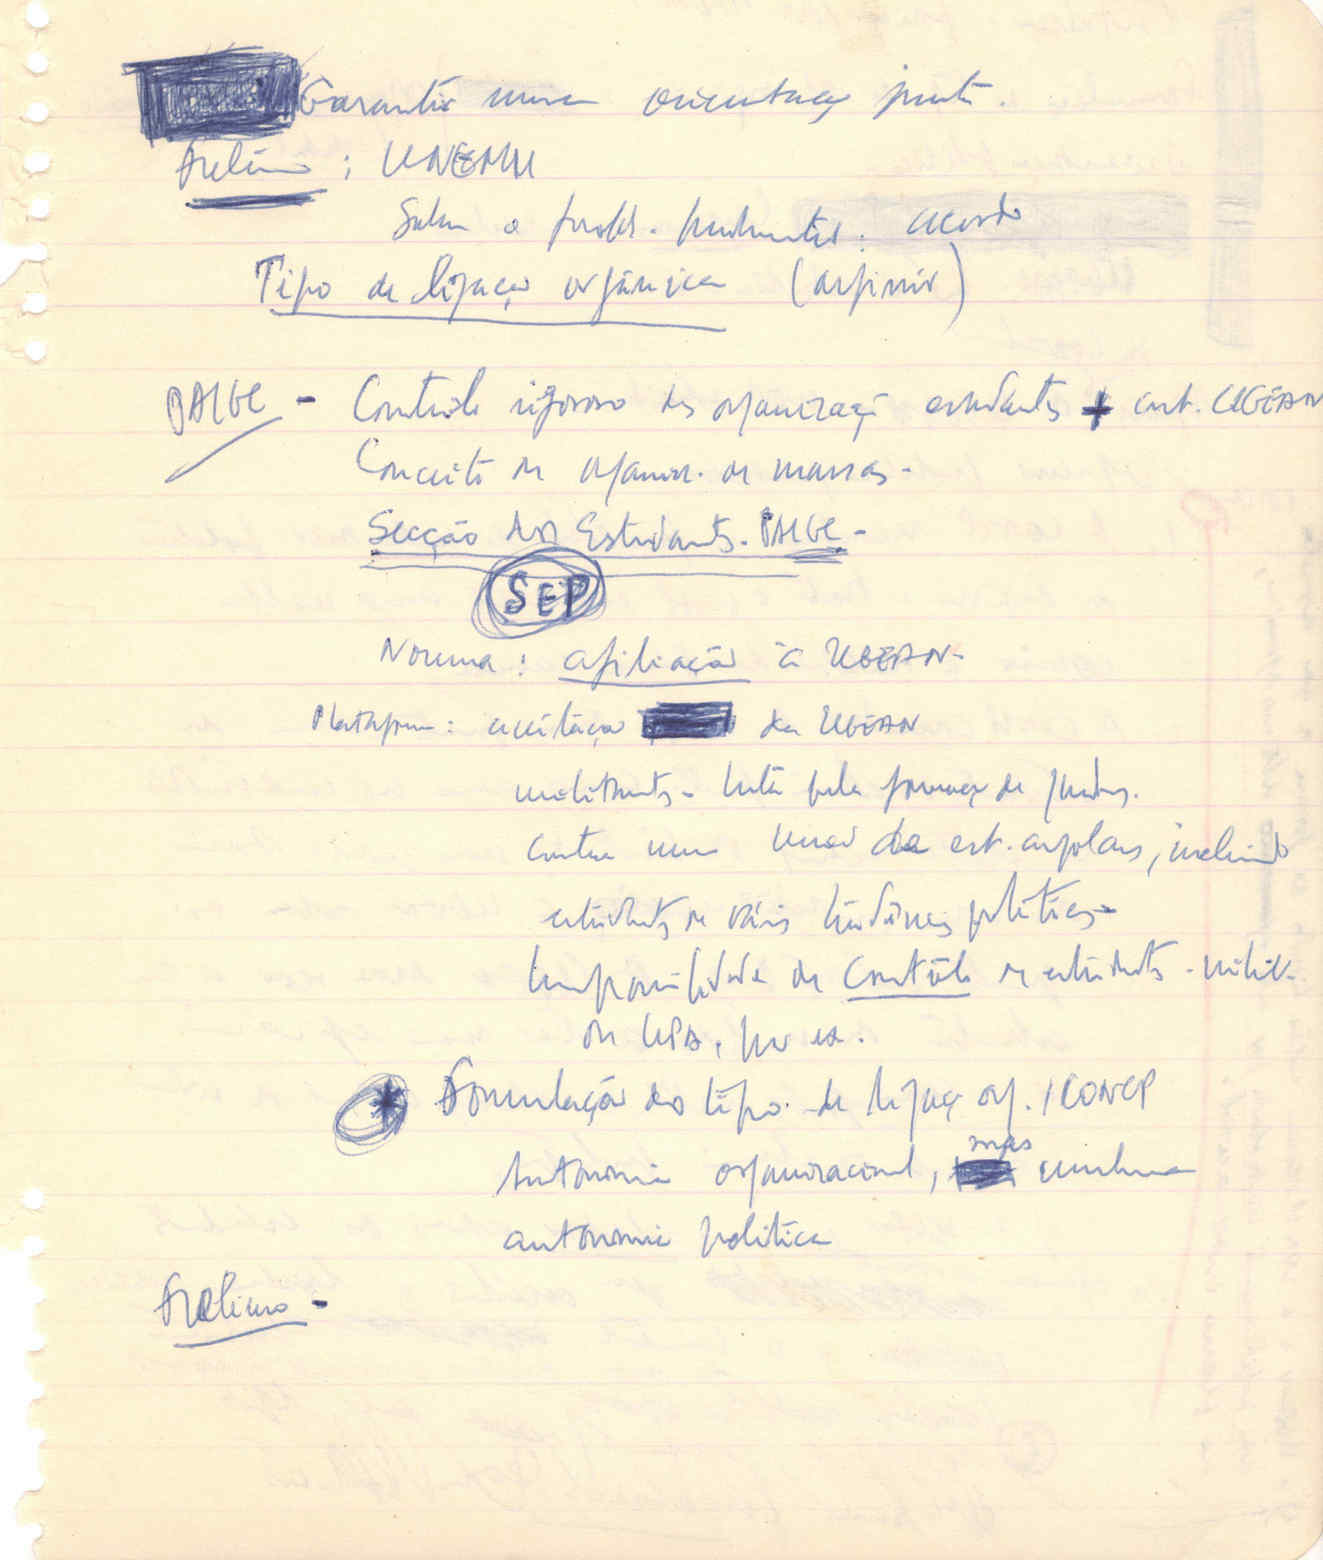 Garantir uma orientação justa.
Frelimo : UNEMU
Sobre o probl. : acordo
Tipo de ligação orgânica (definir)
PAIGC - Controle rigoroso das organizaç estudantes + ent. UGEAN
Conceito de organiz. de massas.
Secção dos Estudants. PAIGC -
SEP
Norma : afiliação à UGEAN.
Plataform : aceitação da UGEAN
militants - luta pela formaç de quadros.
contra uma união de est. , incluindo
estudants de várias tendências políticas
Impossibilidade de Contrôle de estudants - milit.
da UPA, por ex.
* Formulação do tipo de ligaç org. / CONCP
Autonomia organizacional, mas nenhuma
autonomia política
Frelimo -